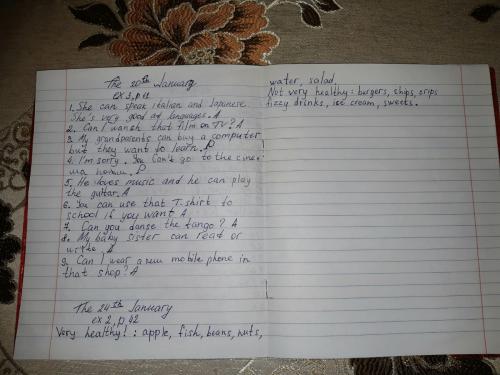 The 20th January
ex 3, p 41
1. She can speak italian and Japanese.
She's very good at languages. A
2. Can I wansh that film on TV? A
3. My grandparents can buy a computer
but they want to learn. P
4. I'm sorry. You can't go to the cine-
ma
5. He loves music and he can play
the guitar. A
6. You can use that T-shirt to
school if you want A
7. Can you danse the tango? A
8. My baby sister can reat or
write. A
9. Can I wear a new mobile phone in
that shop? A
The 24th January
ex 2, p. 42
Very healthy! : apple, fish, beans, nuts,
water, salad,
Not very healthy: burgers, ships, crips
fizzy drinks, ice cream, sweets.